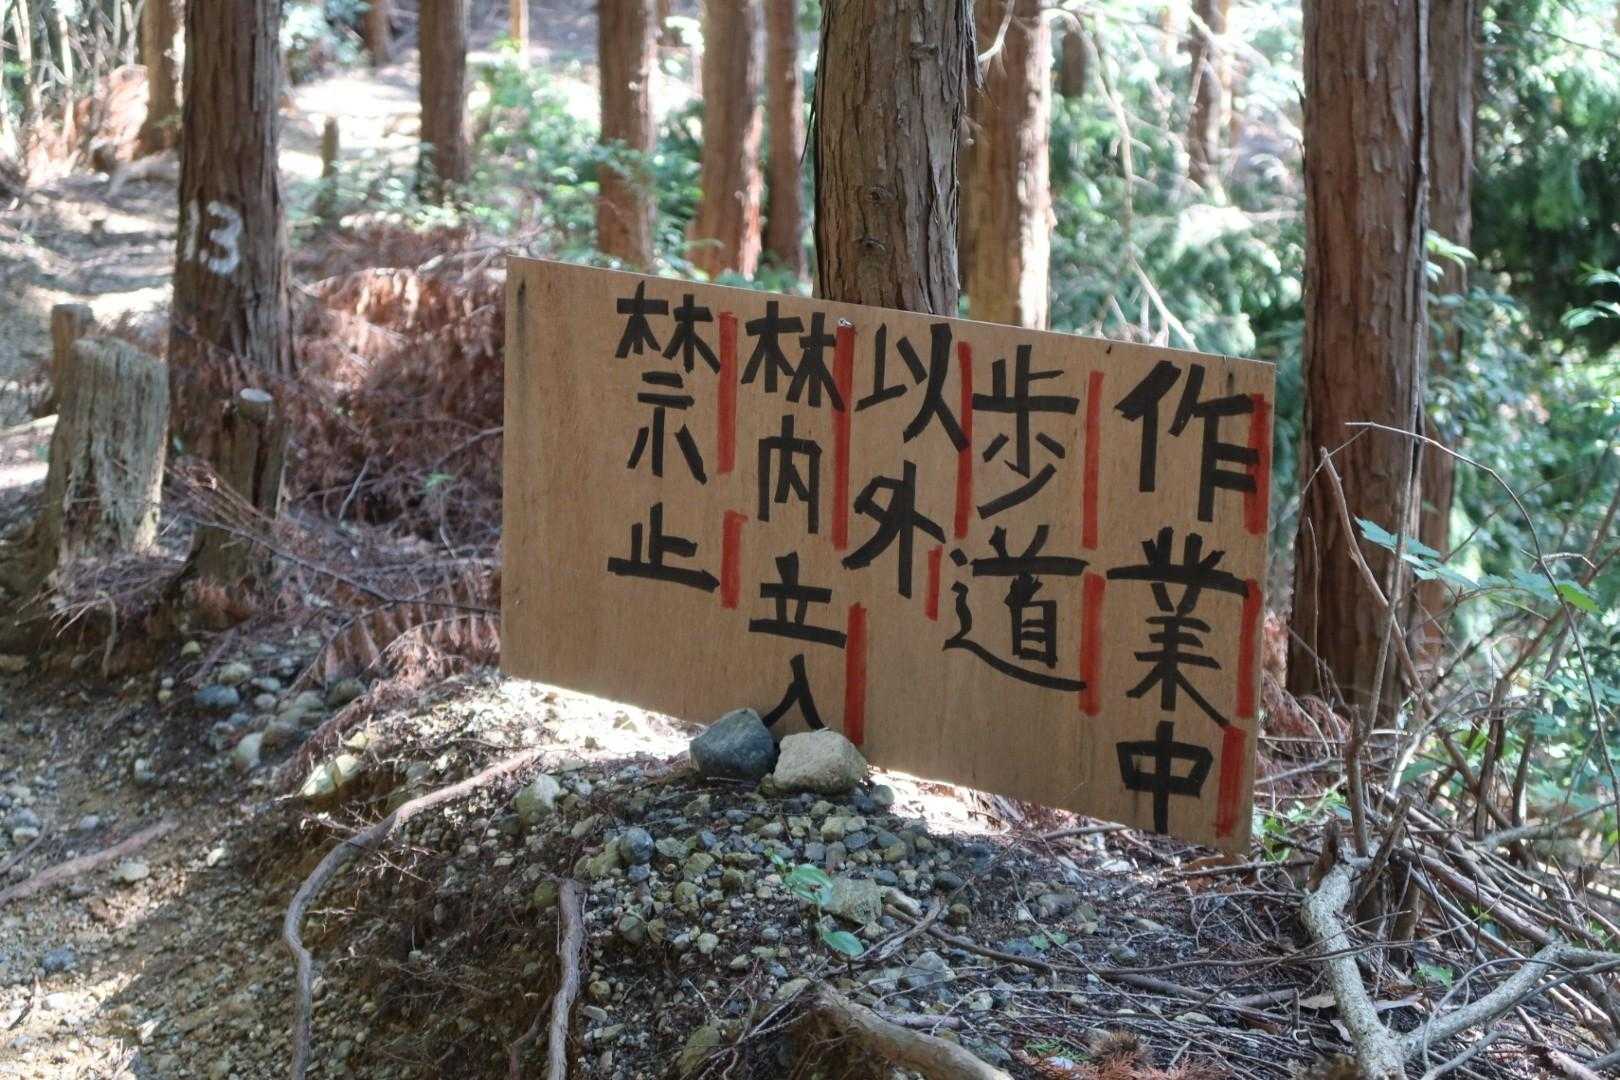 作業中
歩道
以外
林内立入
禁止
13